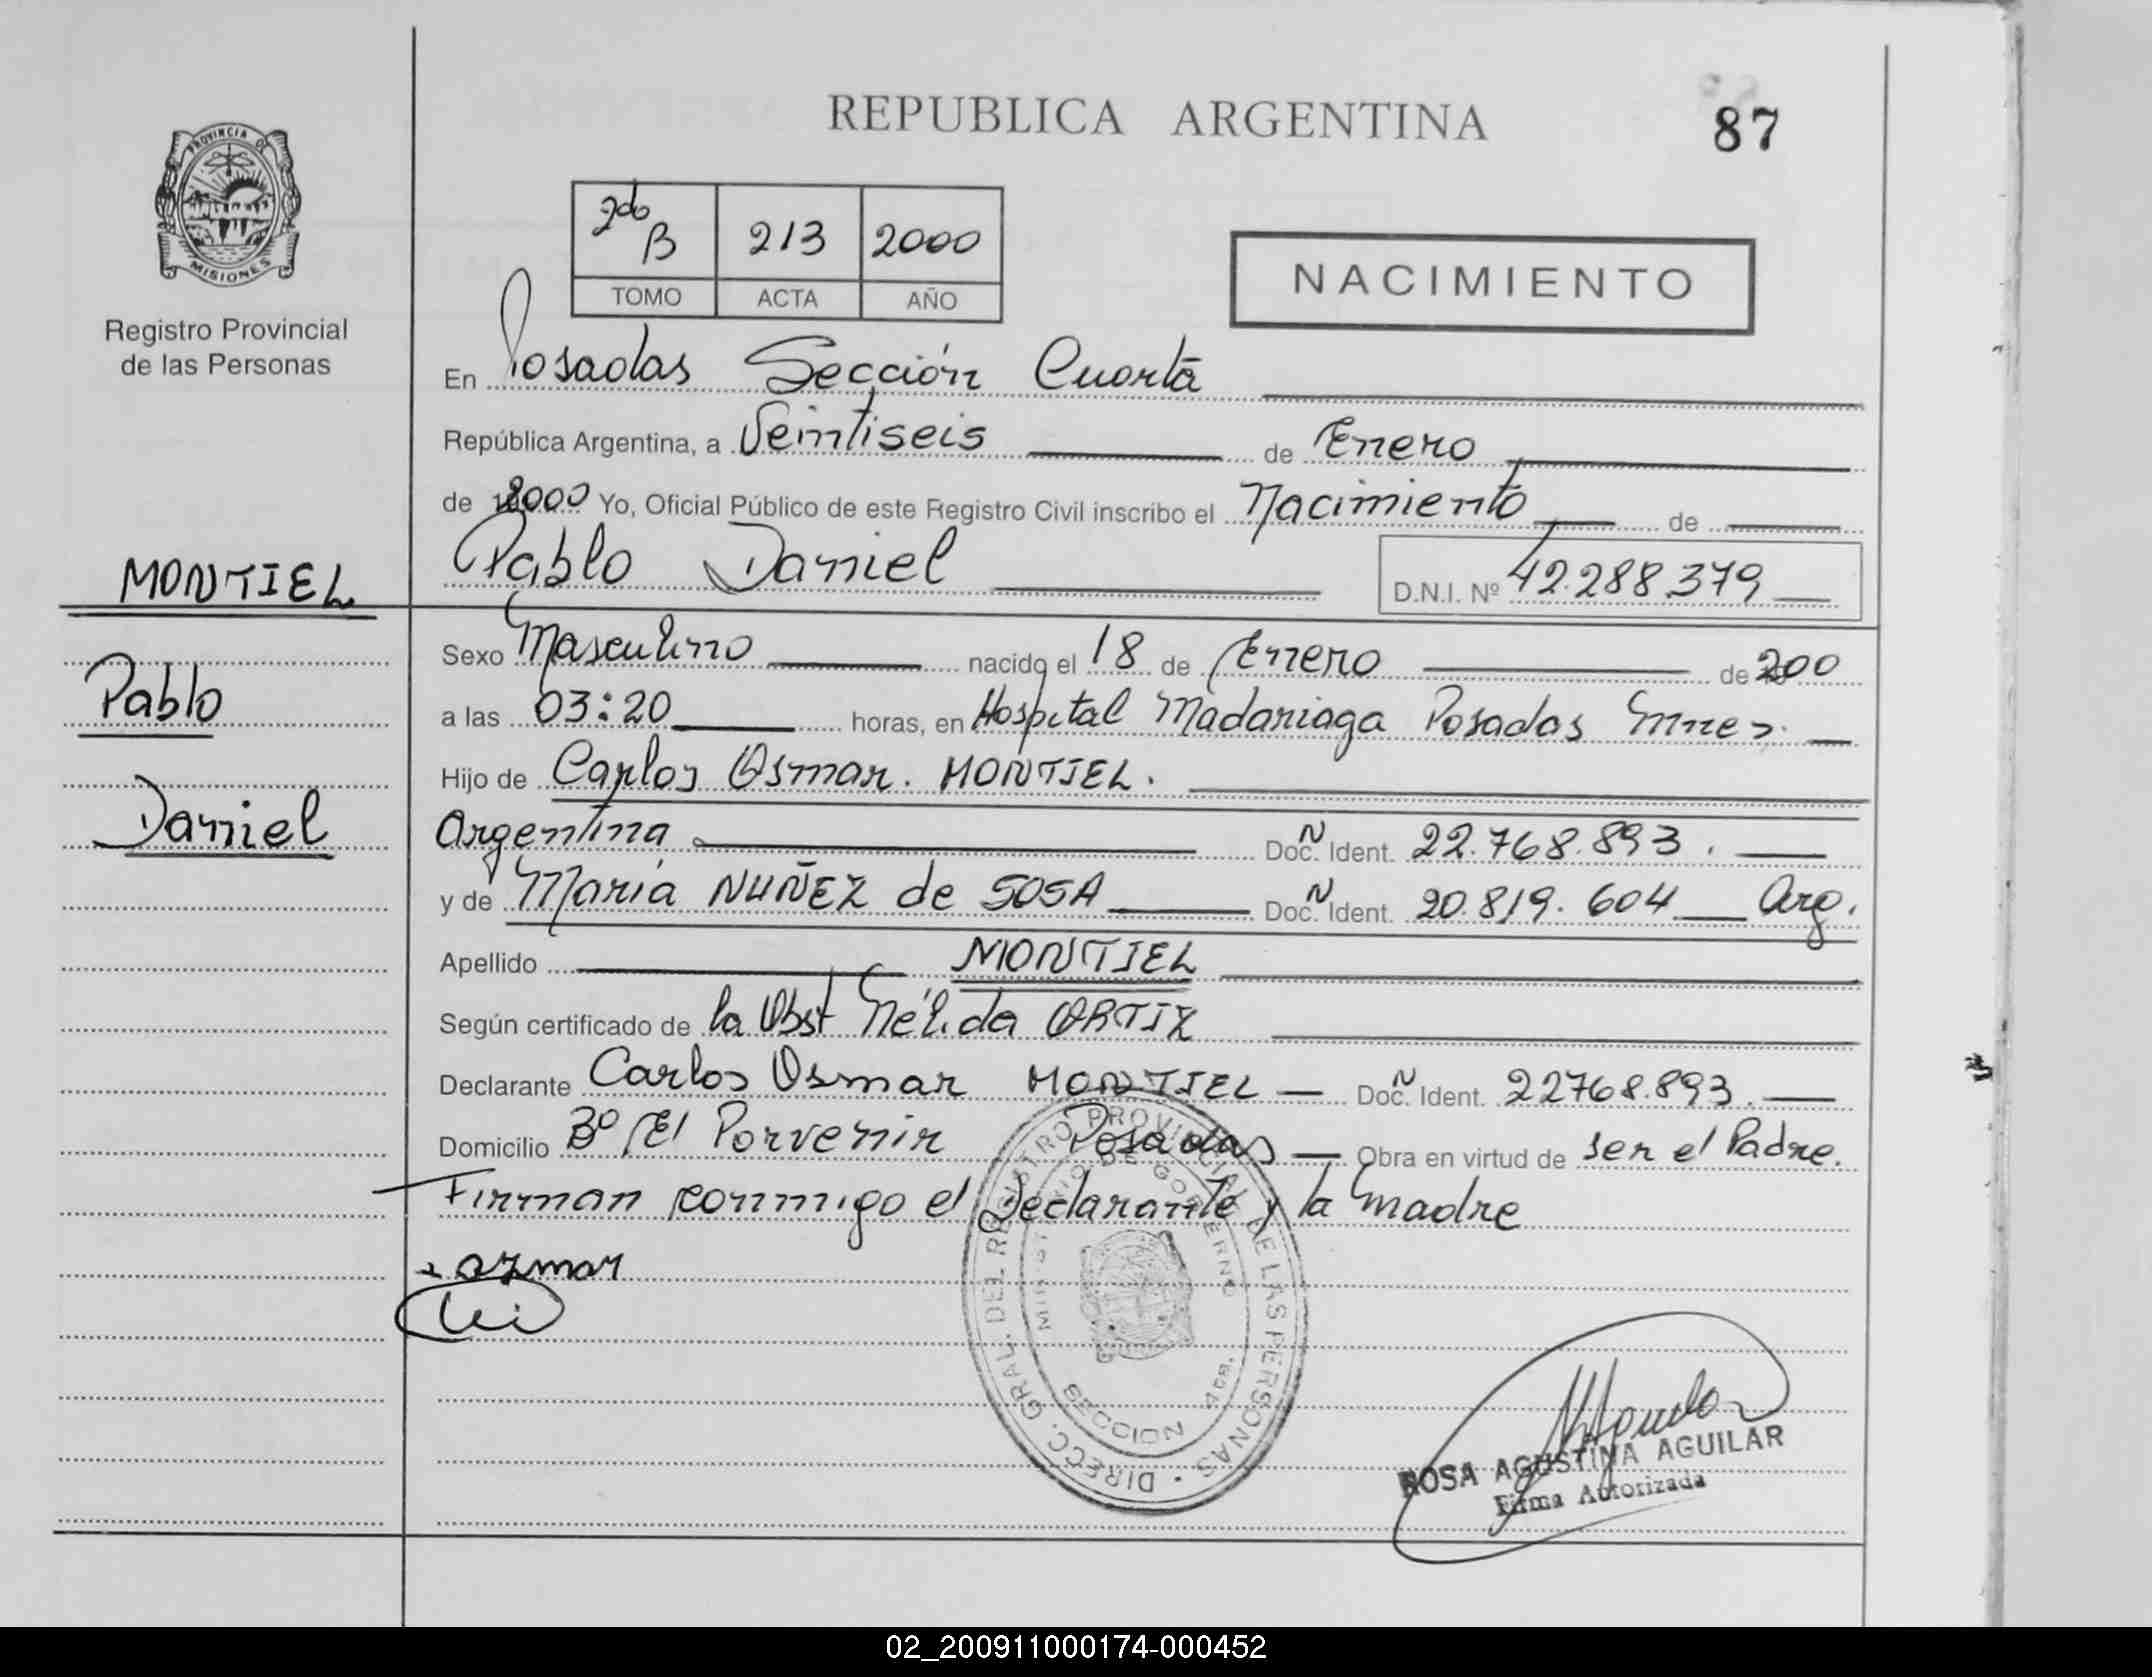 REPUBLICA ARGENTINA
87
PROVINCIA DE
MISIONES
Registro Provincial
de las Personas
2do B 213 2000
TOMO ACTA AÑO
NACIMIENTO
En Posadas Sección Cuarta
República Argentina, a Veintiseis de Enero
de 2000 Yo, Oficial Público de este Registro Civil inscribo el Nacimiento de
Pablo Daniel D.N.I. Nº 42.288.379
MONTIEL
Pablo
Daniel
Sexo Masculino nacido el 18 de Enero de 200
a las 03:20 horas, en Hospital Madariaga Posadas Mnes.
Hijo de Carlos Osmar. MONTIEL.
Argentina Doc. N Ident. 22.768.893.
y de Maria NUÑEZ de SOSA Doc. N Ident. 20.819.604 Arg.
Apellido MONTIEL
Según certificado de la Obst Nélida ORTIZ
Declarante Carlos Osmar MONTIEL Doc. N Ident. 22768.893.
Domicilio Bº El Porvenir Posadas Obra en virtud de ser el Padre.
Firman conmigo el Declarante y la madre
ozmar
DIRECC. GRAL. DEL REGISTRO PROVINCIAL DE LAS PERSONAS
MINISTERIO DE GOBIERNO
SECCION 4ta.
ROSA AGUSTINA AGUILAR
Firma Autorizada
02_200911000174-000452